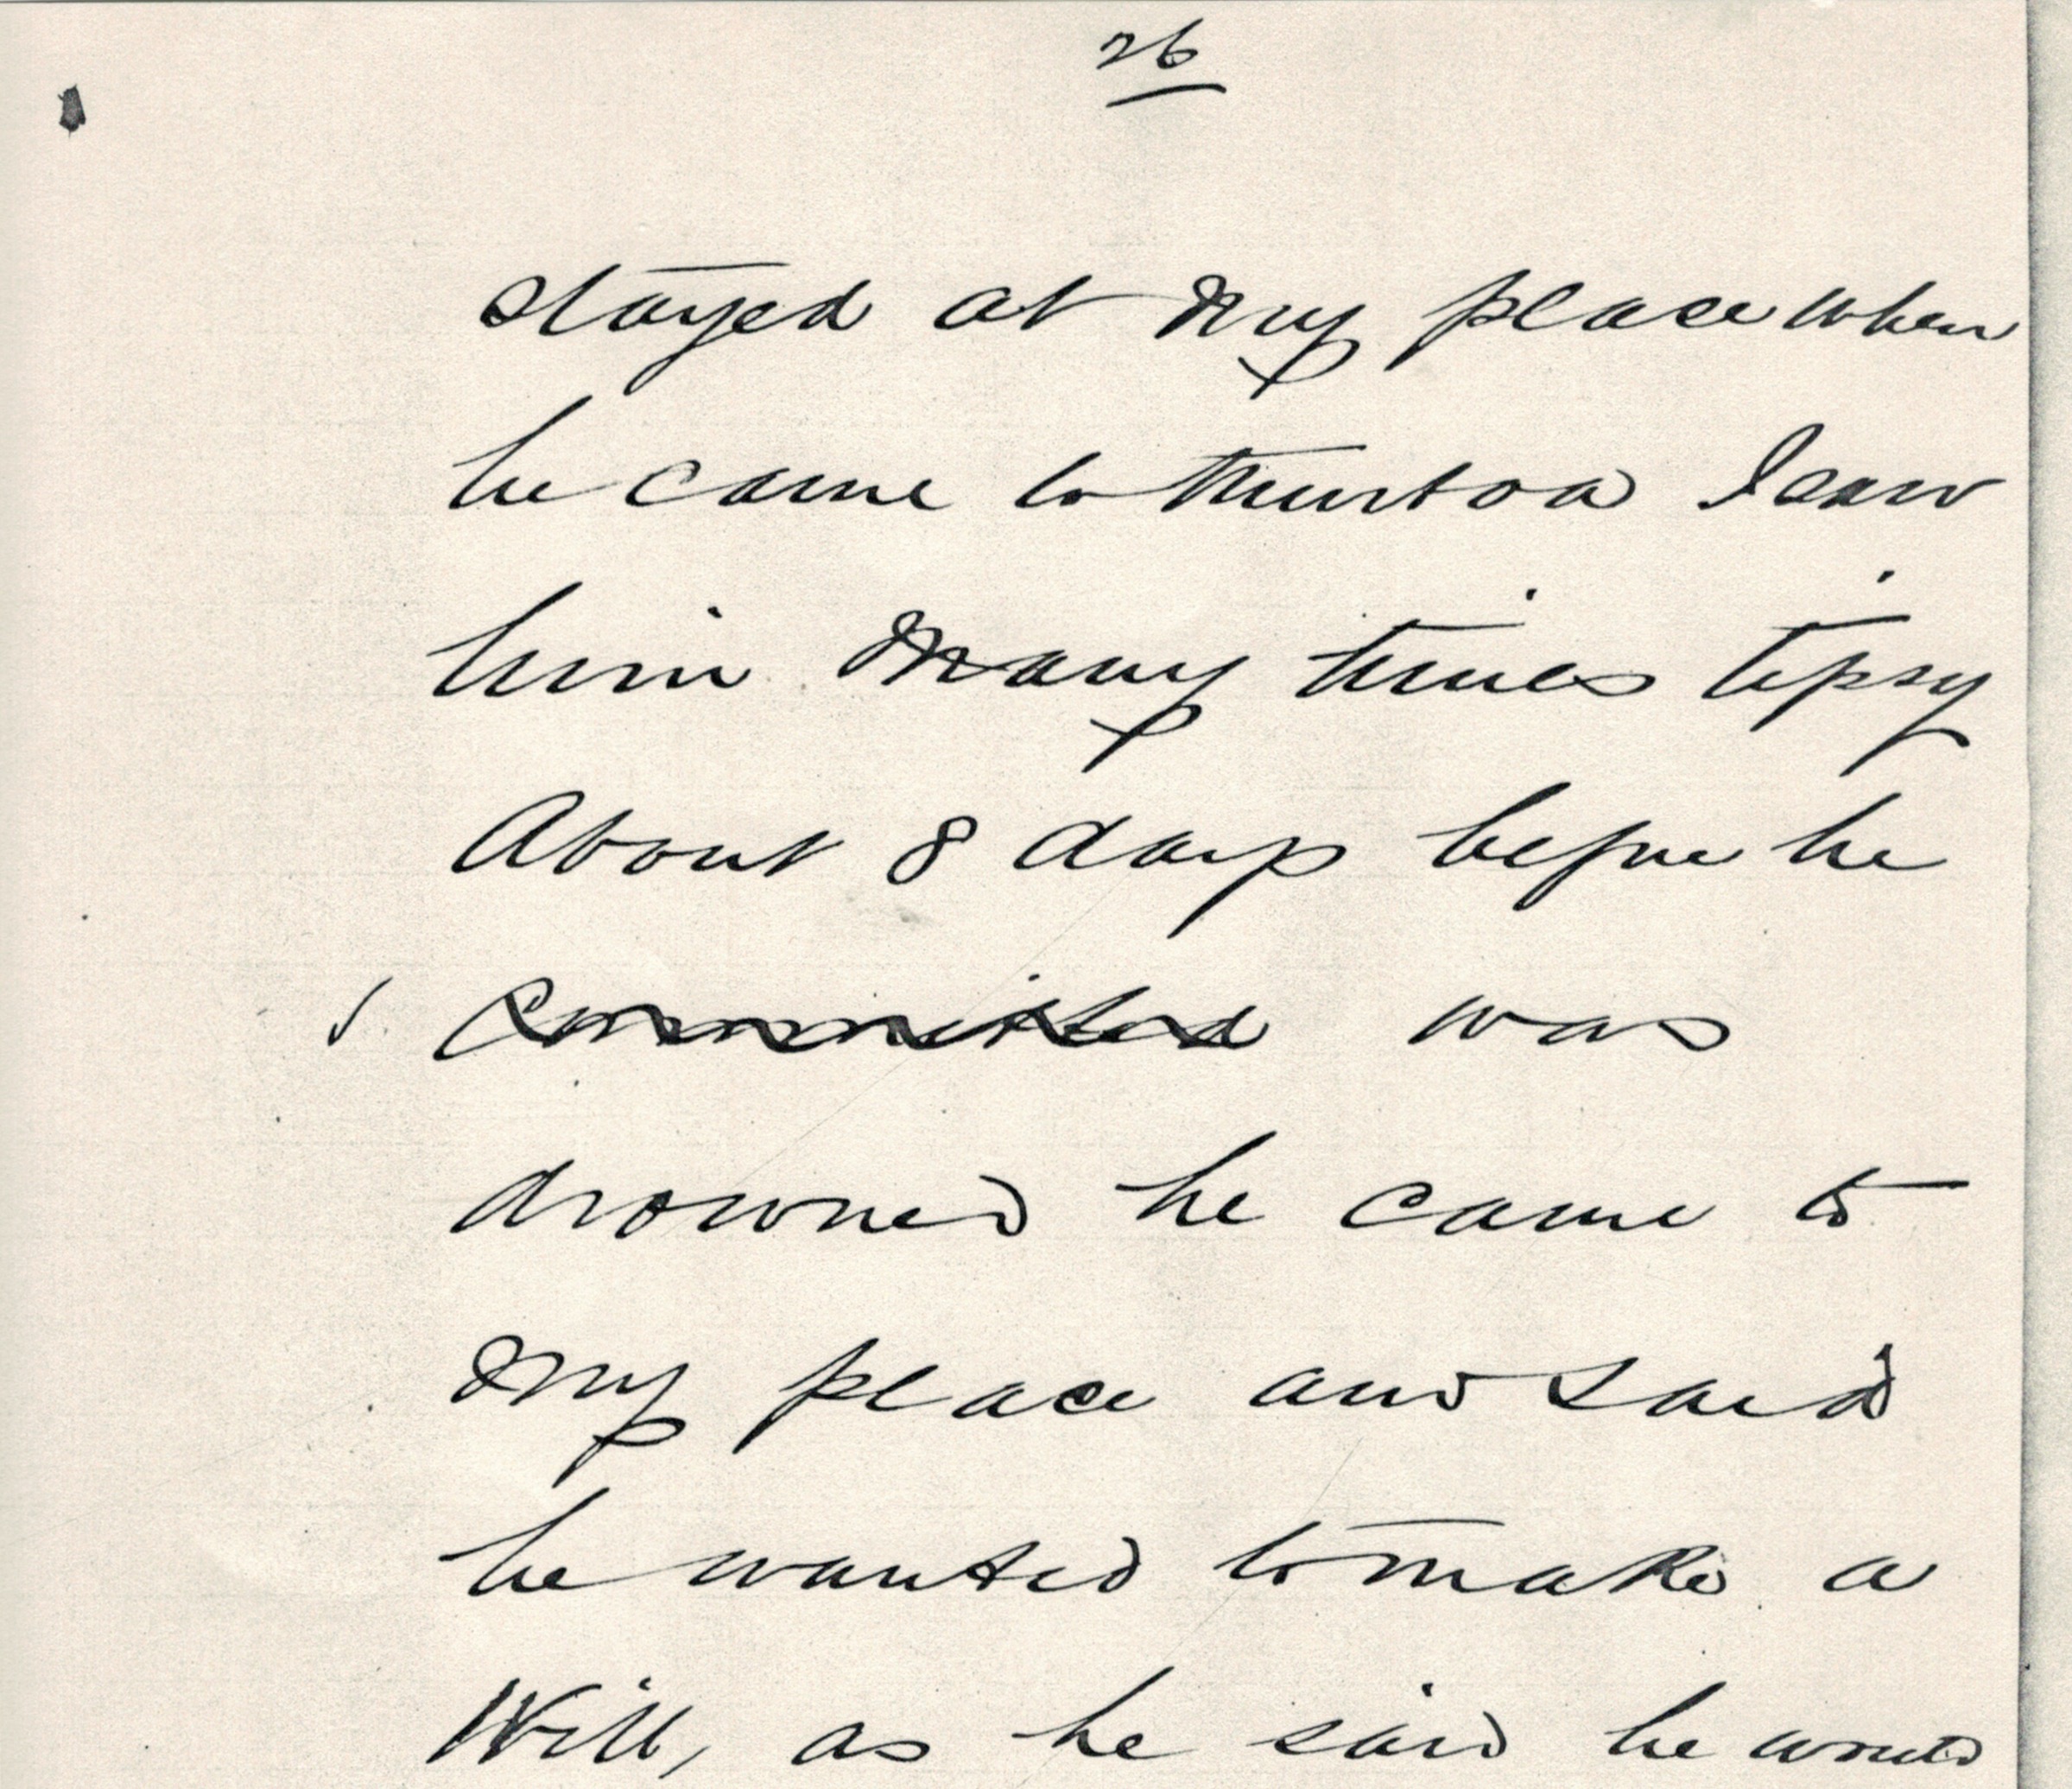 26
stayed at my place when
he came to Murtoa I saw
him many times tipsy
About 8 days before he
committed was
drowned he came to
my place and said
he wanted to make a
Will, as he said he would